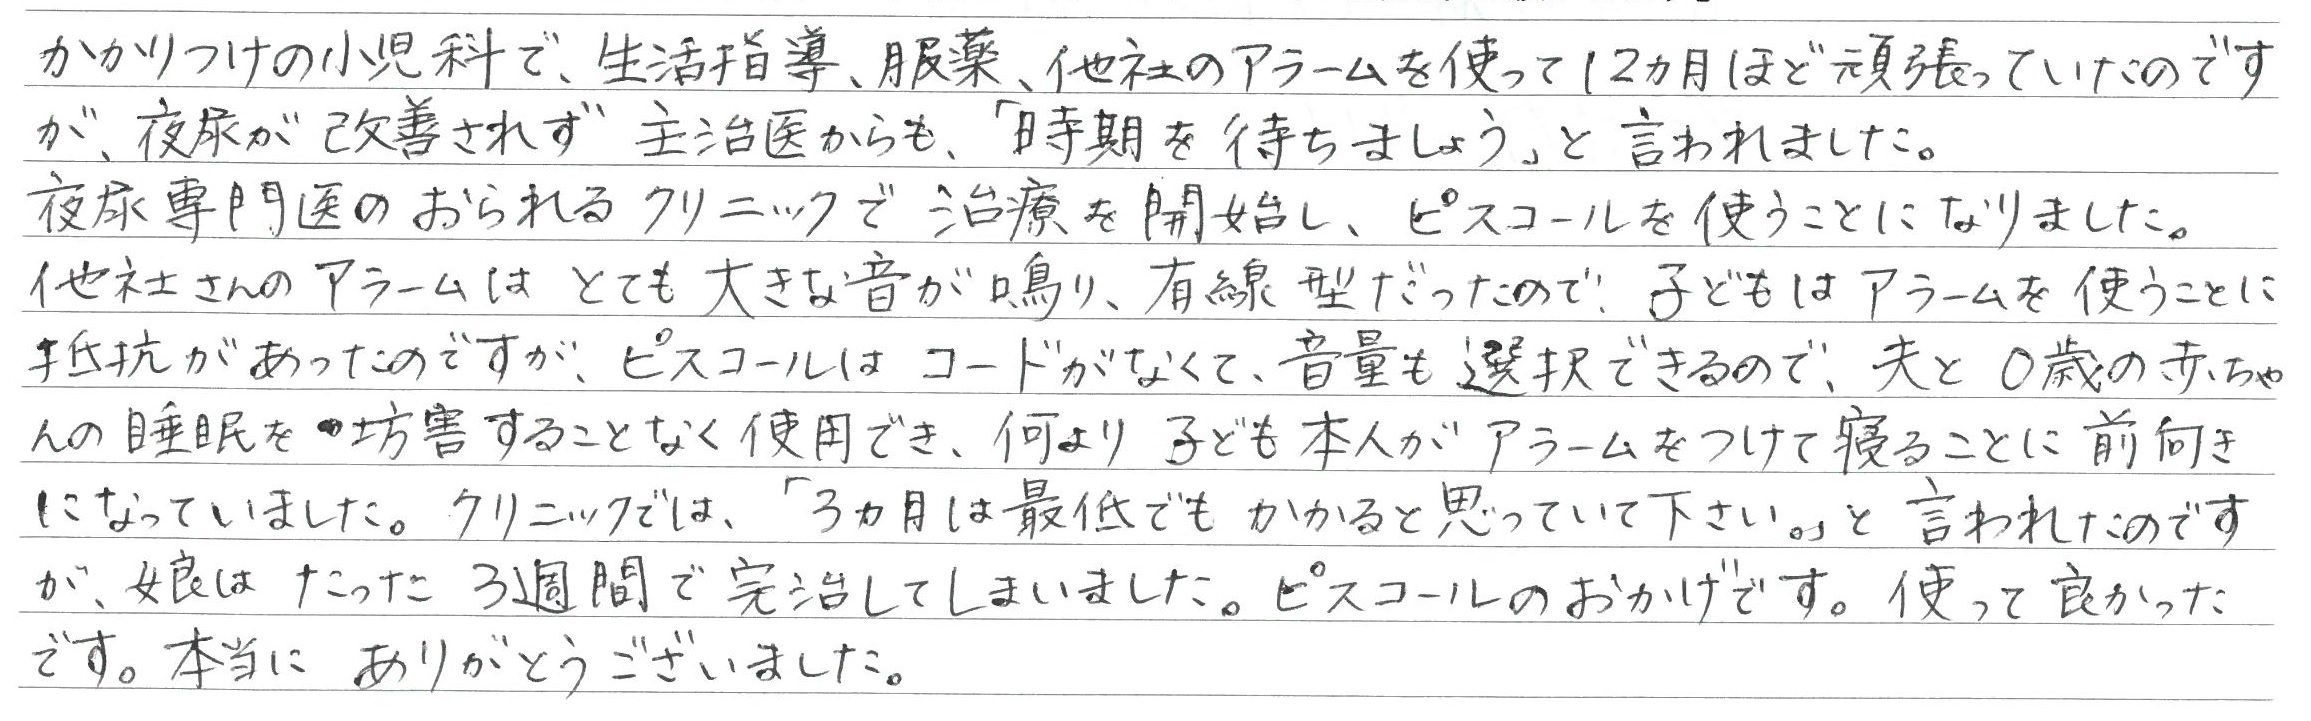 かかりつけの小児科で、生活指導、服薬、他社のアラームを使って12ヵ月ほど頑張っていたのです
が、夜尿が改善されず主治医からも、「時期を待ちましょう」と言われました。
夜尿専門医のおられるクリニックで治療を開始し、ピスコールを使うことになりました。
他社さんのアラームはとても大きな音が鳴り、有線型だったので、子どもはアラームを使うことに
抵抗があったのですが、ピスコールはコードがなくて、音量も選択できるので、夫と0歳の赤ちゃ
んの睡眠を妨害することなく使用でき、何より子ども本人がアラームをつけて寝ることに前向き
になっていました。クリニックでは、「3ヵ月は最低でもかかると思っていて下さい。」と言われたのです
が、娘はたった3週間で完治してしまいました。ピスコールのおかげです。使って良かった
です。本当にありがとうございました。